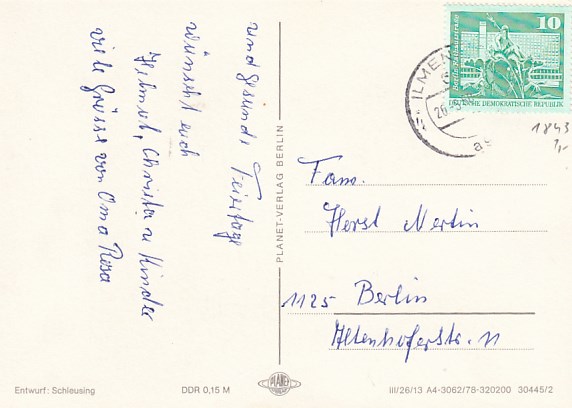 und gesunde Feiertage
wünscht euch
Helmut, Christa u Kinder
viele Grüsse von Oma Rosa
PLANET-VERLAG BERLIN
10
Berlin, Rathausstraße
DEUTSCHE DEMOKRATISCHE REPUBLIK
ILMEN
26
1843
1,-
Fam.
Horst Mertin
1125 Berlin
Altenhoferstr. 11
Entwurf: Schleusing
DDR 0,15 M
PLANET
III/26/13 A4-3062/78-320200 30445/2